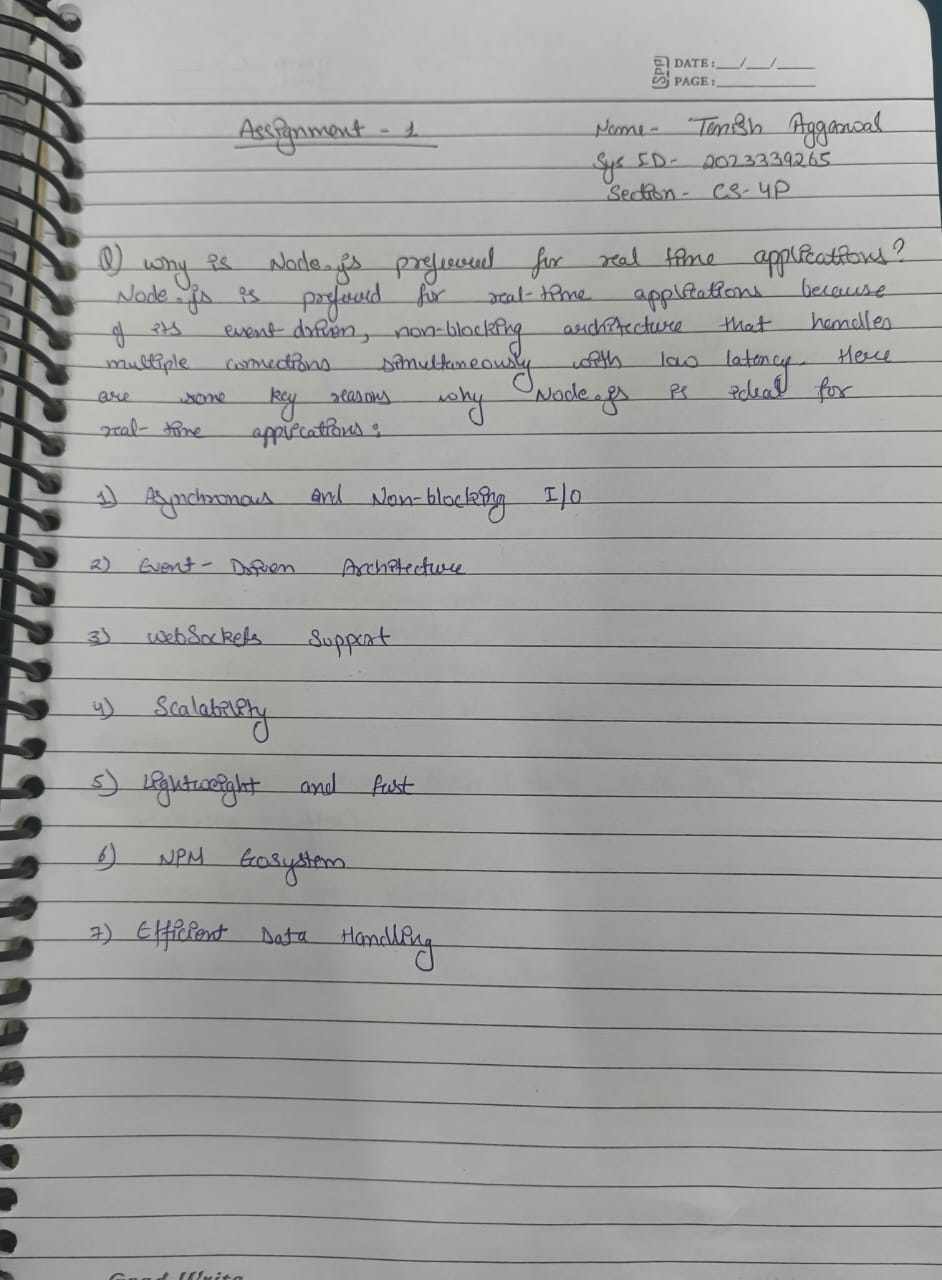 DATE: __/__/____
PAGE: ________
Assignment - 1
Name- Tanish Aggarwal
Sys ID- 2023339265
Section- CS-4P
Q) Why is Node.js preferred for real time applications?
Node.js is preferred for real-time applications because
of its event-driven, non-blocking architecture that handles
multiple connections simultaneously with low latency. Here
are some key reasons why Node.js is ideal for
real-time applications:
1) Asynchronous and Non-blocking I/O
2) Event-Driven Architecture
3) WebSockets Support
4) Scalability
5) Lightweight and fast
6) NPM Ecosystem
7) Efficient Data Handling